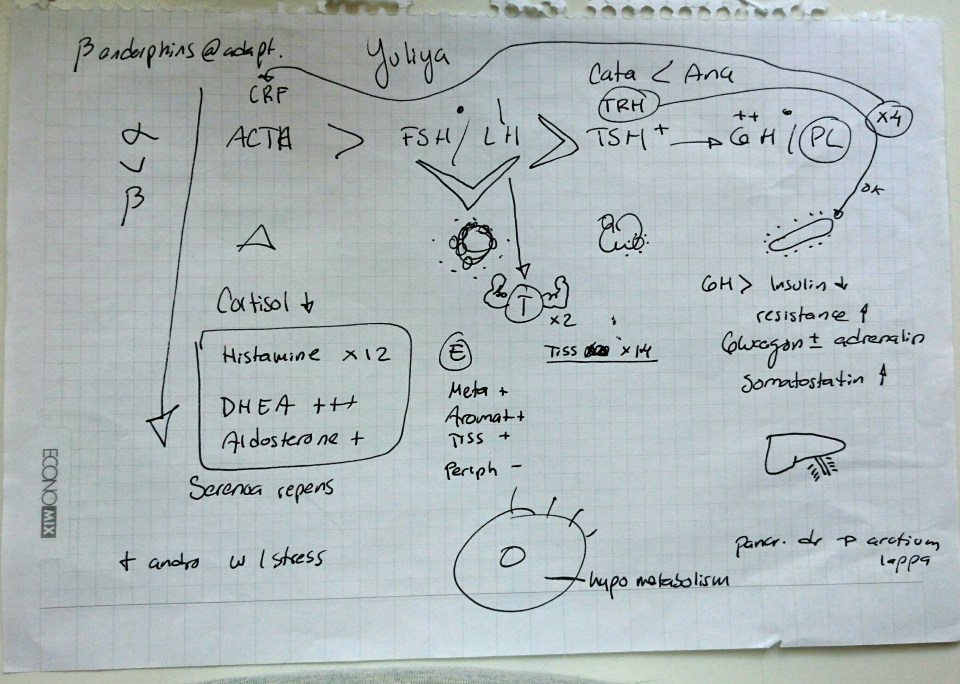 β endorphins @ adapt.
Yuliya
Cata < Ana
CRF
TRH
x4
α
ACTH > FSH / LH > TSH + → ++ GH / PL
β
OK
Cortisol ↓
T
x2
GH > Insulin ↓
resistance ↑
Glucagon ± adrenalin
Somatostatin ↑
Histamine x12
DHEA +++
Aldosterone +
E
Tiss x14
Meta +
Aromat +
Tiss +
Periph -
Serenoa repens
+ andro w / stress
hypo metabolism
pancr. dr → arctium
lappa
ECONOMIX